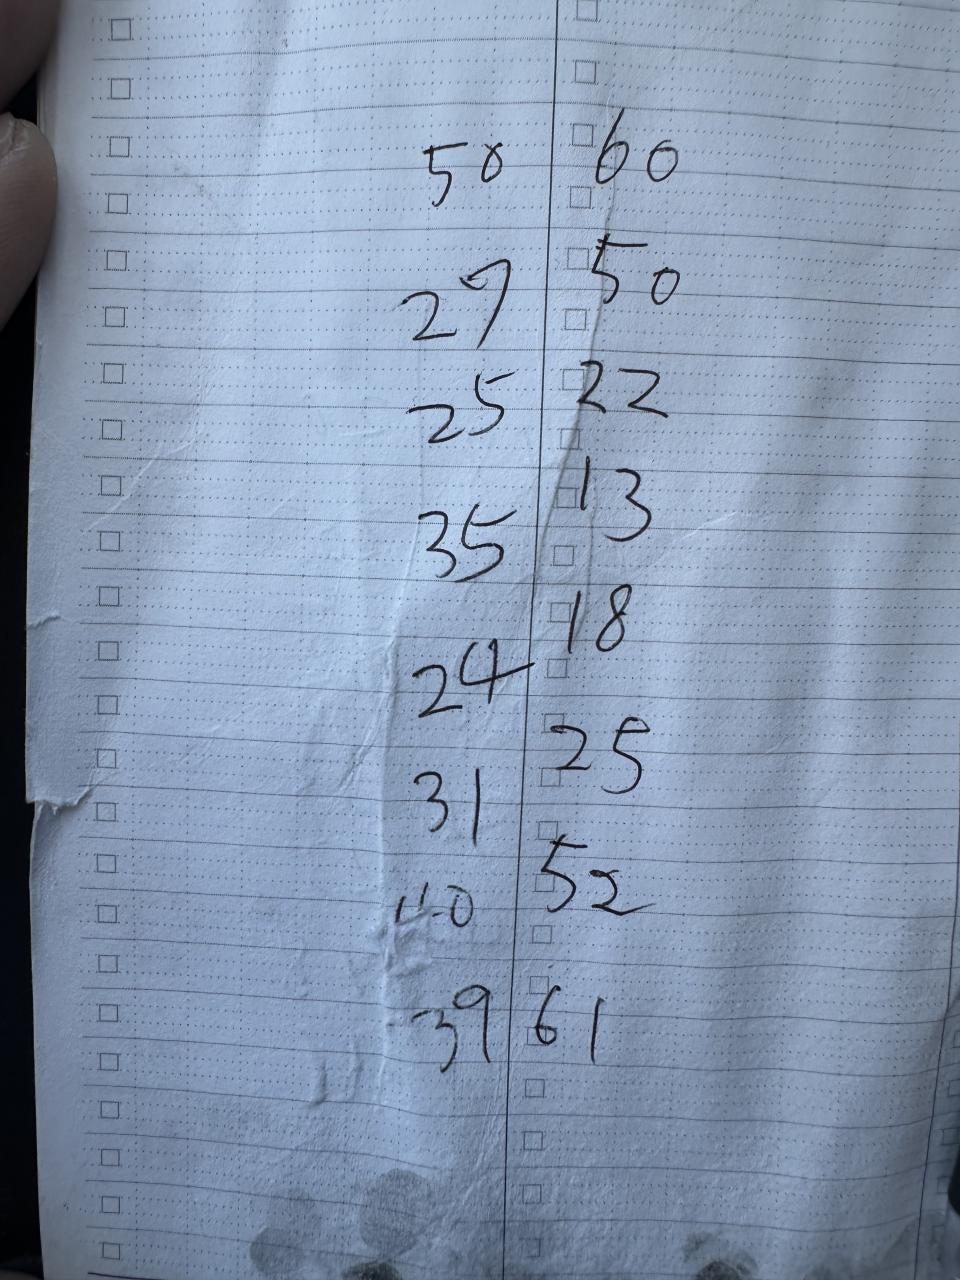 50 60
27 50
25 22
35 13
24 18
31 25
52
39 61